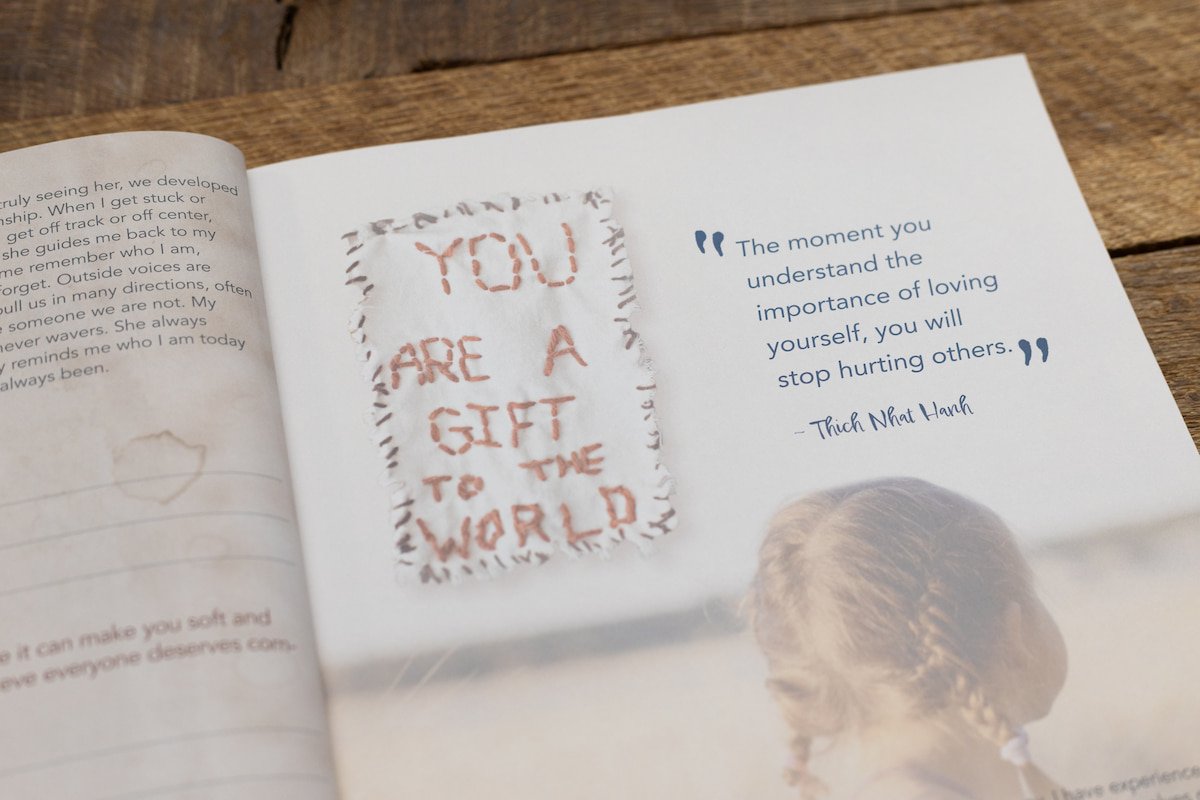 truly seeing her, we developed
nship. When I get stuck or
get off track or off center,
she guides me back to my
me remember who I am,
forget. Outside voices are
pull us in many directions, often
someone we are not. My
never wavers. She always
reminds me who I am today
always been.
e it can make you soft and
eve everyone deserves com-
YOU
ARE A
GIFT
TO THE
WORLD
"The moment you
understand the
importance of loving
yourself, you will
stop hurting others."
– Thich Nhat Hanh
I have experience